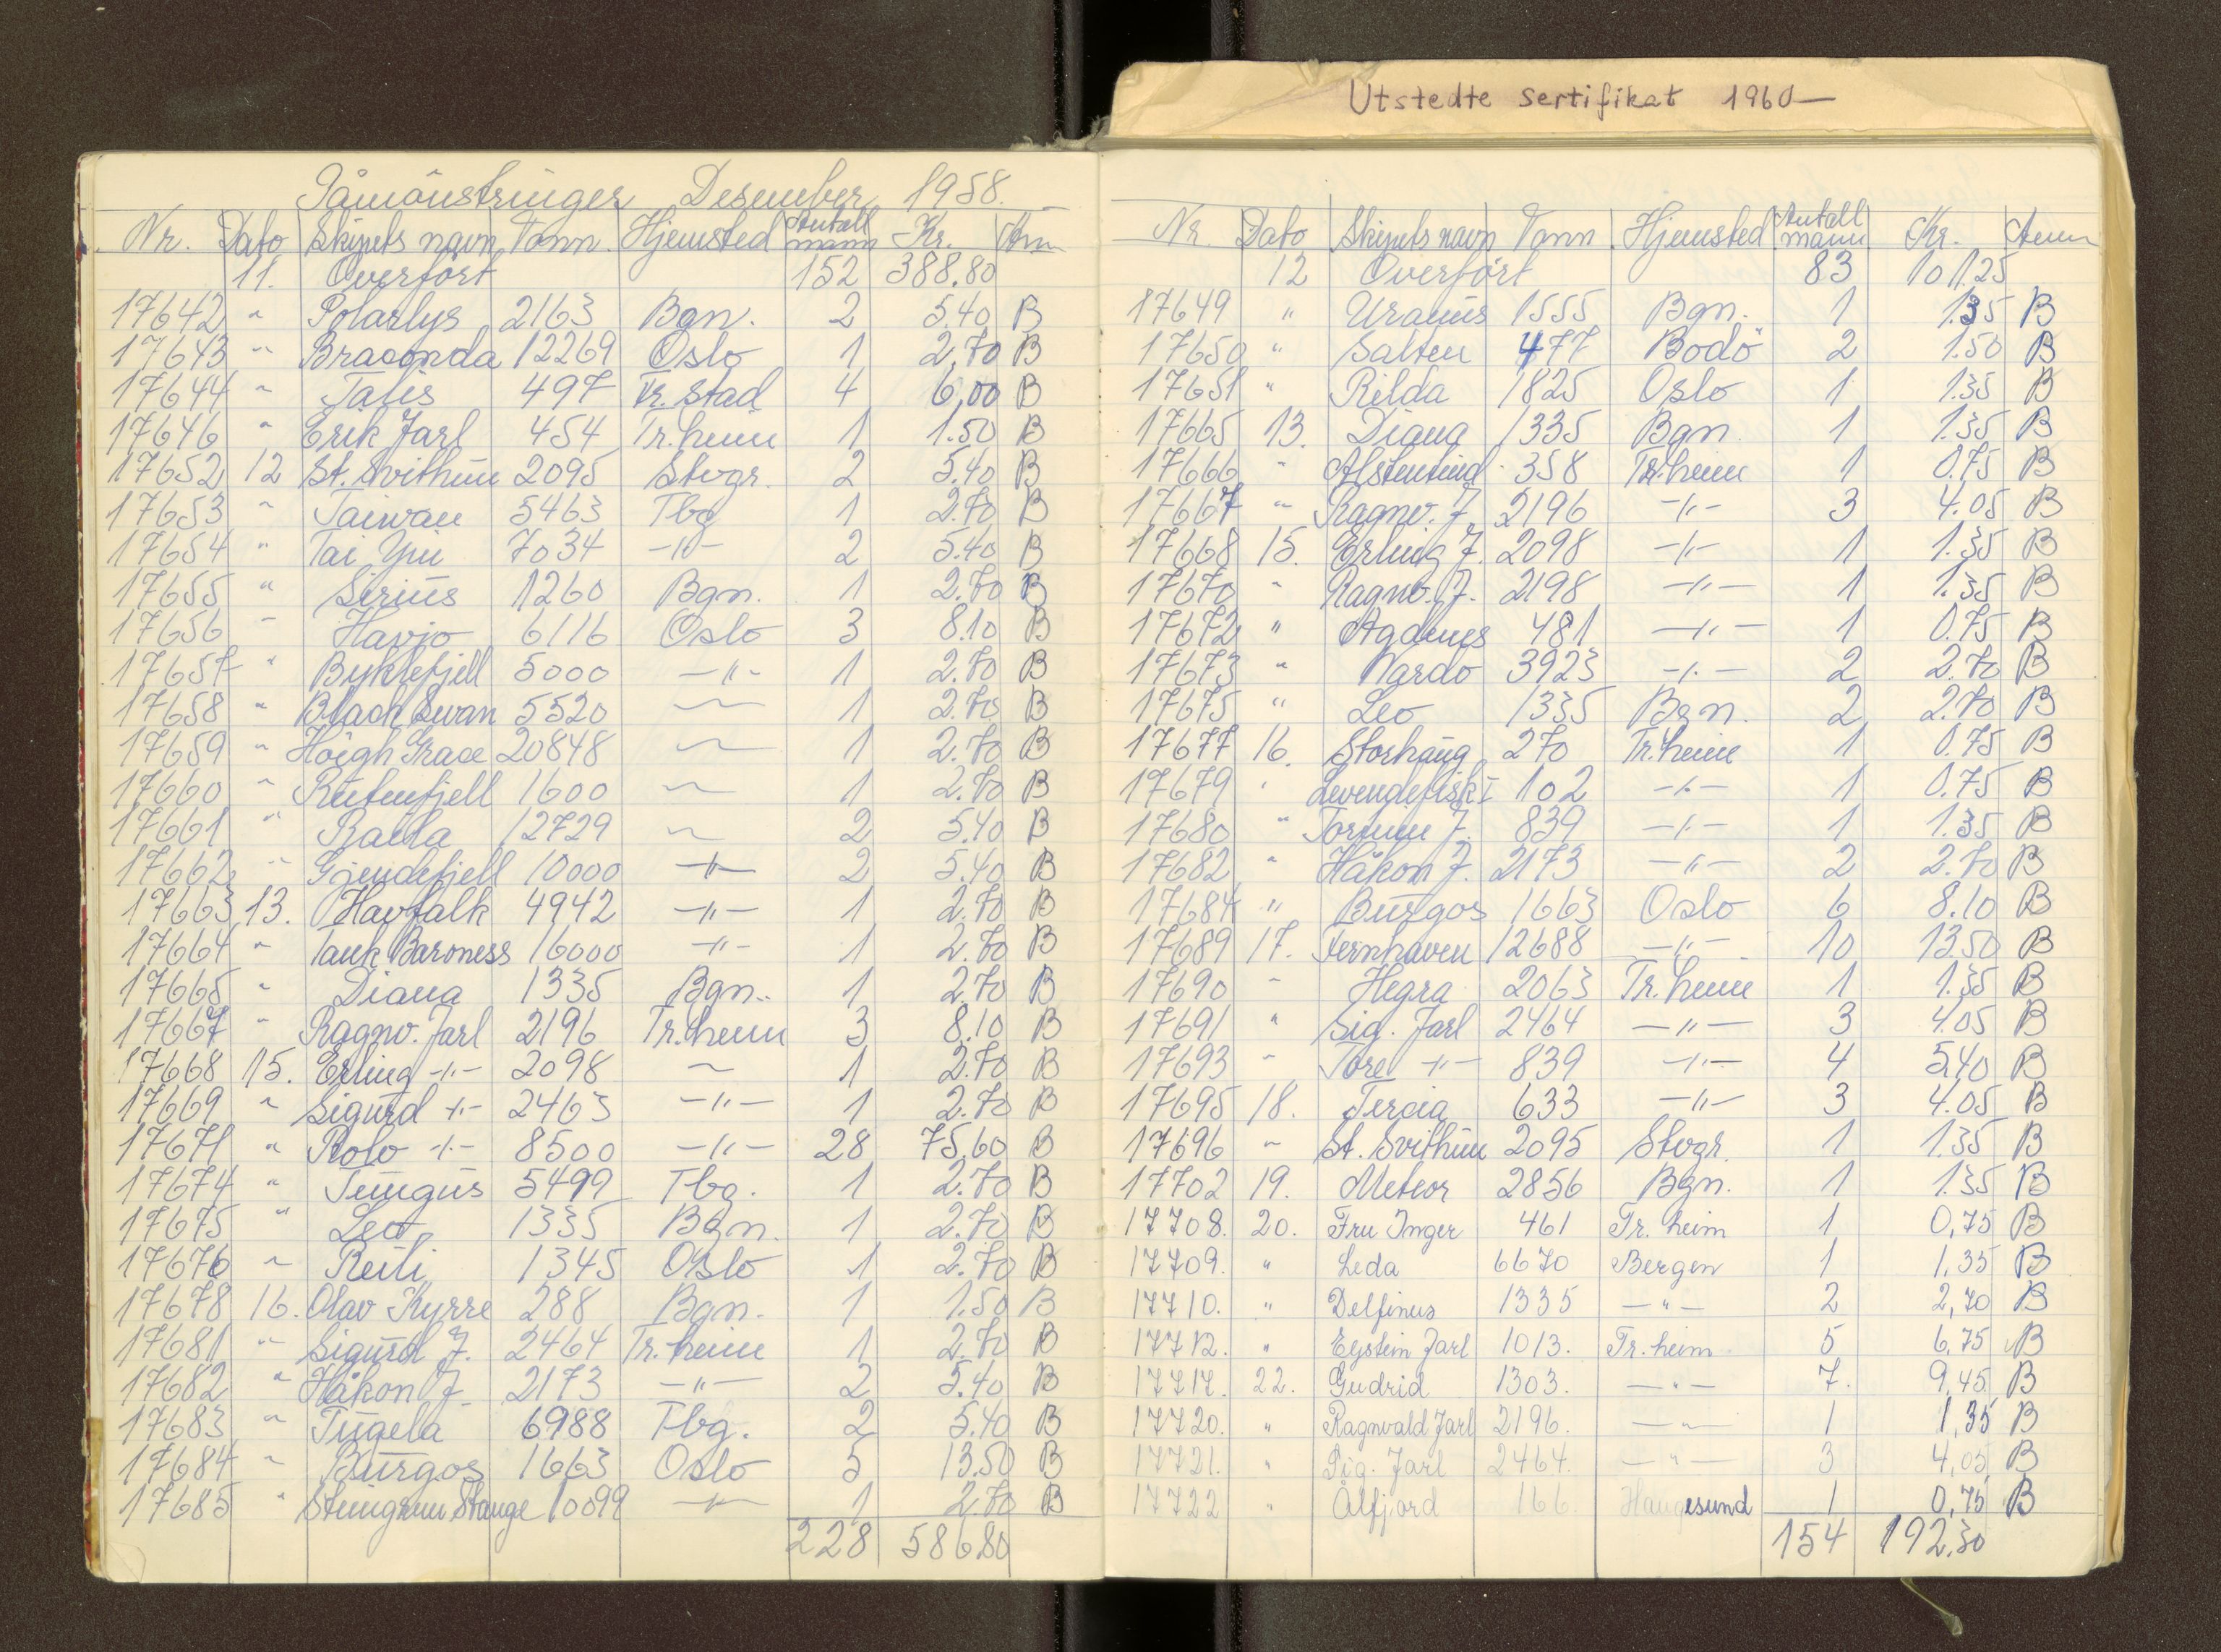 Utstedte sertifikat 1960—
Påmönstringer Desember 1958.
Nr. Dato Skipets navn Tonn. Hjemsted Antall mann Kr. Anm
11. Overfört 152 388.80
17642 " Polarlys 2163 Bgn. 2 5.40 B
17643 " Braconda 12269 Oslo 1 2,70 B
17644 " Tatis 497 Fr. stad 4 6,00 B
17646 " Erik Jarl 454 Tr.heim 1 1.50 B
17652 12 St. Svithun 2095 Stvgr. 2 5.40 B
17653 " Taiwan 5463 Tbg 1 2.70 B
17654 " Tai Yin 7034 -"- 2 5.40 B
17655 " Sirius 1260 Bgn. 1 2.70 B
17656 " Havjo 6116 Oslo 3 8.10 B
17657 " Byklefjell 5000 -"- 1 2.70 B
17658 " Black Swan 5520 " 1 2.70 B
17659 " Höigh Grace 20848 " 1 2.70 B
17660 " Rutenfjell 1600 " 1 2.70 B
17661 " Raila 12729 " 2 5.40 B
17662 " Gjendefjell 10000 -"- 2 5.40 B
17663 13. Havfalk 4942 -"- 1 2.70 B
17664 " Tank Baroness 16000 -"- 1 2.70 B
17665 " Diana 1335 Bgn.. 1 2.70 B
17667 " Ragnv. Jarl 2196 Tr.heim 3 8.10 B
17668 15. Erling -"- 2098 " 1 2.70 B
17669 " Sigurd -"- 2463 -"- 1 2.70 B
17671 " Rolv -"- 8500 -"- 28 75,60 B
17674 " Tungus 5499 Tbg. 1 2.70 B
17675 " Leo 1335 Bgn. 1 2.70 B
17676 " Reili 1345 Oslo 1 2.70 B
17678 16. Olav Kyrre 288 Bgn. 1 1.50 B
17681 " Sigurd J. 2464 Tr.heim 1 2.70 B
17682 " Håkon J. 2173 -"- 2 5.40 B
17683 " Tugela 6988 Tbg. 2 5.40 B
17684 " Burgos 1663 Oslo 5 13.50 B
17685 " Steingrun Stange 10099 -"- 1 2.70 B
228 586.80
Nr. Dato Skipets navn Tonn Hjemsted Antall mann Kr. Anm
12 Overfört 83 101,25
17649 " Uranus 1555 Bgn. 1 1.35 B
17650 " Salten 477 Bodö 2 1.50 B
17651 " Rilda 1825 Oslo 1 1.35 B
17665 13. Diana 1335 Bgn 1 1.35 B
17666 " Alstentind 358 Tr.heim 1 0.75 B
17667 " Ragnv. J. 2196 -"- 3 4.05 B
17668 15. Erling J. 2098 -"- 1 1.35 B
17670 " Ragnv. J. 2198 -"- 1 1.35 B
17672 " Agdenes 481 -"- 1 0.75 B
17673 " Vardo 3923 -"- 2 2.70 B
17675 " Leo 1335 Bgn. 2 2.70 B
17677 16. Storhaug 270 Tr.heim 1 0.75 B
17679 " Levendefisk I 102 -"- 1 0.75 B
17680 " Torfinn J. 839 -"- 1 1.35 B
17682 " Håkon J. 2173 -"- 2 2.70 B
17684 " Burgos 1663 Oslo 6 8.10 B
17689 17. Fernhaven 12688 -"- 10 13.50 B
17690 " Hegra 2063 Tr.heim 1 1.35 B
17691 " Sig. Jarl 2464 -"- 3 4.05 B
17693 " Tore -"- 839 -"- 4 5,40 B
17695 18. Tercia 633 -"- 3 4.05 B
17696 " St. Svithun 2095 Stvgr. 1 1.35 B
17702 19. Meteor 2856 Bgn. 1 1.35 B
17708. 20. Fru Inger 461 Tr. heim 1 0,75 B
17709. " Leda 6670 Bergen 1 1,35 B
17710. " Delfinus 1335 -"- 2 2,70 B
17712. " Eystein Jarl 1013. Tr. heim 5 6,75 B
17717. 22. Gudrid 1303. -"- 7. 9,45 B
17720. " Ragnvald Jarl 2196. -"- 1 1,35 B
17721. " Sig. Jarl 2464. -"- 3 4,05 B
17722 " Ålfjord 166. Haugesund 1 0,75 B
154 192,30